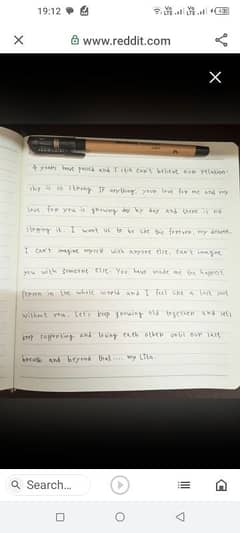 19:12
www.reddit.com
4 years have passed and I still can't believe our relation-
ship is so strong. If anything, your love for me and my
love for you is growing day by day and there is no
stopping it. I want us to be like this forever, my dearest.
I can't imagine myself with anyone else. Can't imagine
you with someone else. You have made me the happiest
person in the whole world and I feel like a lost soul
without you. Let's keep growing old together and let's
keep supporting and loving each other until our last
breath and beyond that.... my
Search...